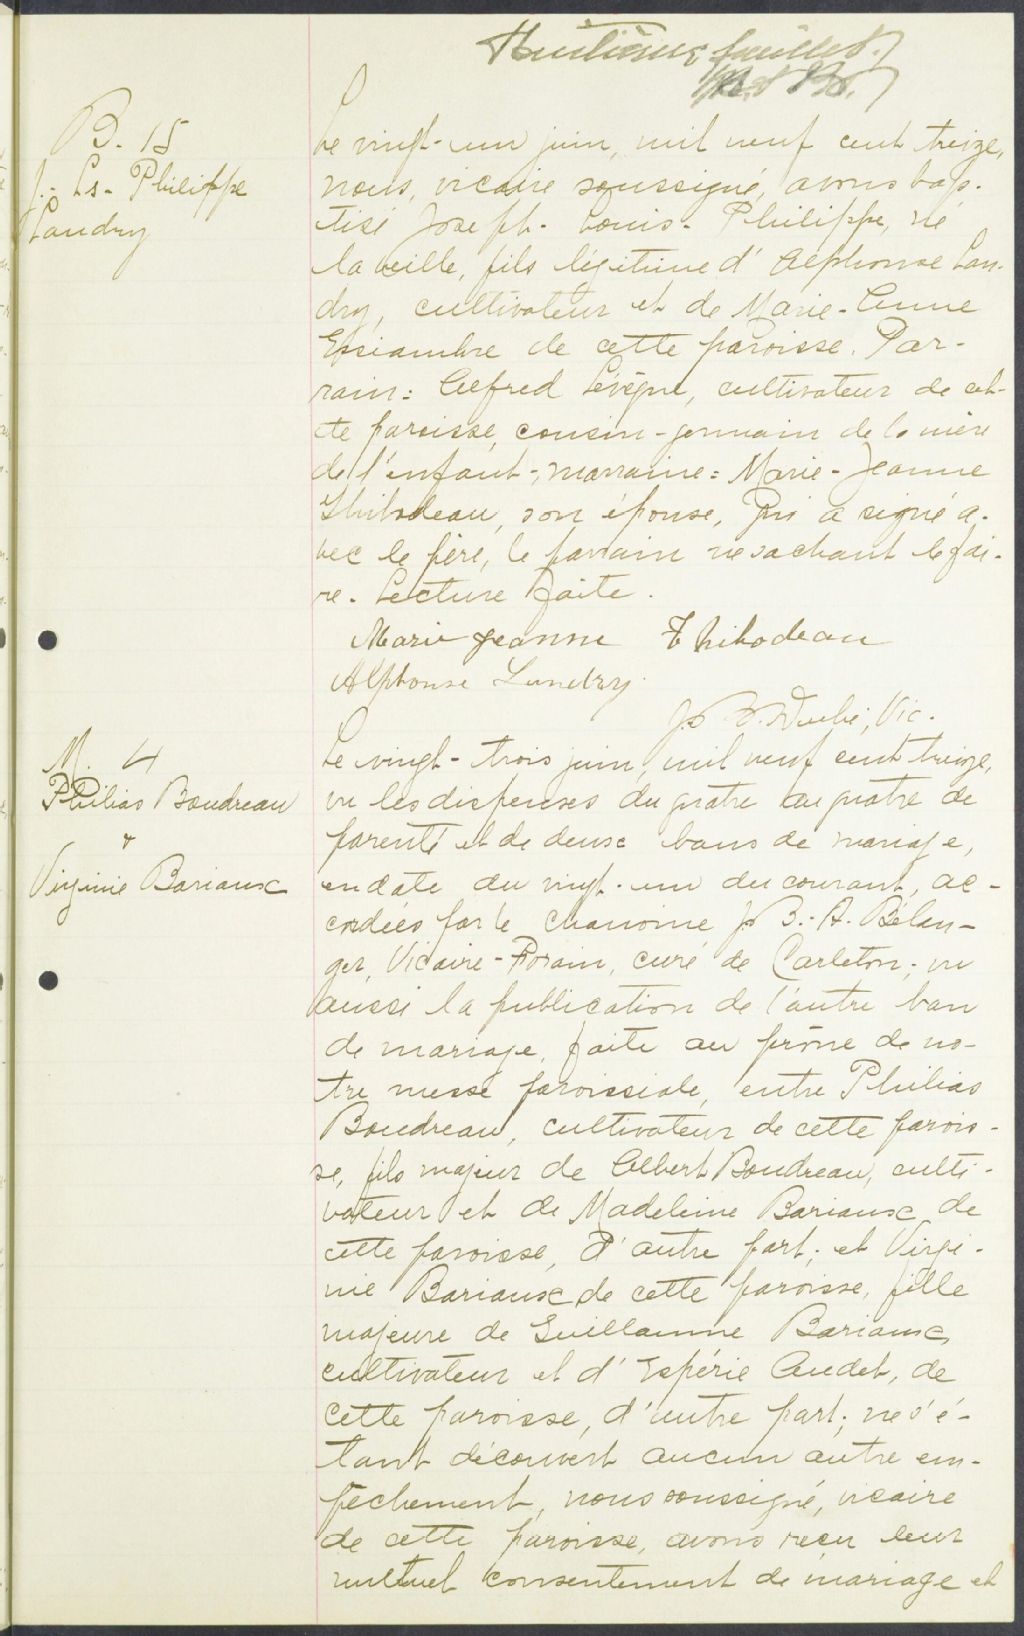 Huitième feuillet.
B. 15
J.- Ls- Philippe
Landry
Le vingt-un juin, mil neuf cent treize,
nous, vicaire soussigné, avons bap-
tisé Joseph-Louis-Philippe, né
la veille, fils légitime d'Alphonse Lan-
dry, cultivateur et de Marie-Anne
Essiambre de cette paroisse. Par-
rain: Alfred Lévêque, cultivateur de cet-
te paroisse, cousin-germain de la mère
de l'enfant; marraine: Marie-Jeanne
Thibodeau, son épouse, qui a signé a-
vec le père, le parrain ne sachant le fai-
re. Lecture faite.
Marie Jeanne Thibodeau
Alphonse Landry
Dubé, Vic.
M. 4
Philias Boudreau
&
Virginie Bariaux
Le vingt-trois juin, mil neuf cent treize,
vu les dispenses du quatre au quatre de
parenté et de deux bans de mariage,
en date du vingt-un du courant, ac-
cordées par le chanoine J. B.-A. Bélan-
ger, Vicaire-Forain, curé de Carleton; vu
aussi la publication de l'autre ban
de mariage, faite au prône de no-
tre messe paroissiale, entre Philias
Boudreau, cultivateur de cette parois-
se, fils majeur de Albert Boudreau, culti-
vateur et de Madeleine Bariaux de
cette paroisse, d'autre part; et Virgi-
nie Bariaux de cette paroisse, fille
majeure de Guillaume Bariaux,
cultivateur et d'Espérie Audet, de
cette paroisse, d'autre part; ne s'é-
tant découvert aucun autre em-
pêchement, nous soussigné, vicaire
de cette paroisse, avons reçu leur
mutuel consentement de mariage et